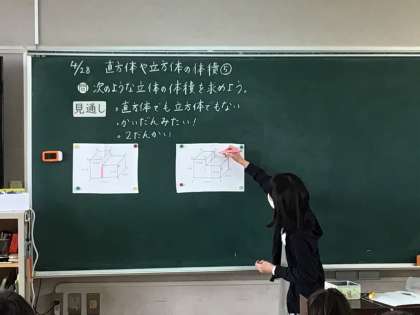 4/28 直方体や立方体の体積⑤
問 次のような立体の体積を求めよう。
見通し 。直方体でも立方体でもない
。かいだんみたい!
。2だんかい